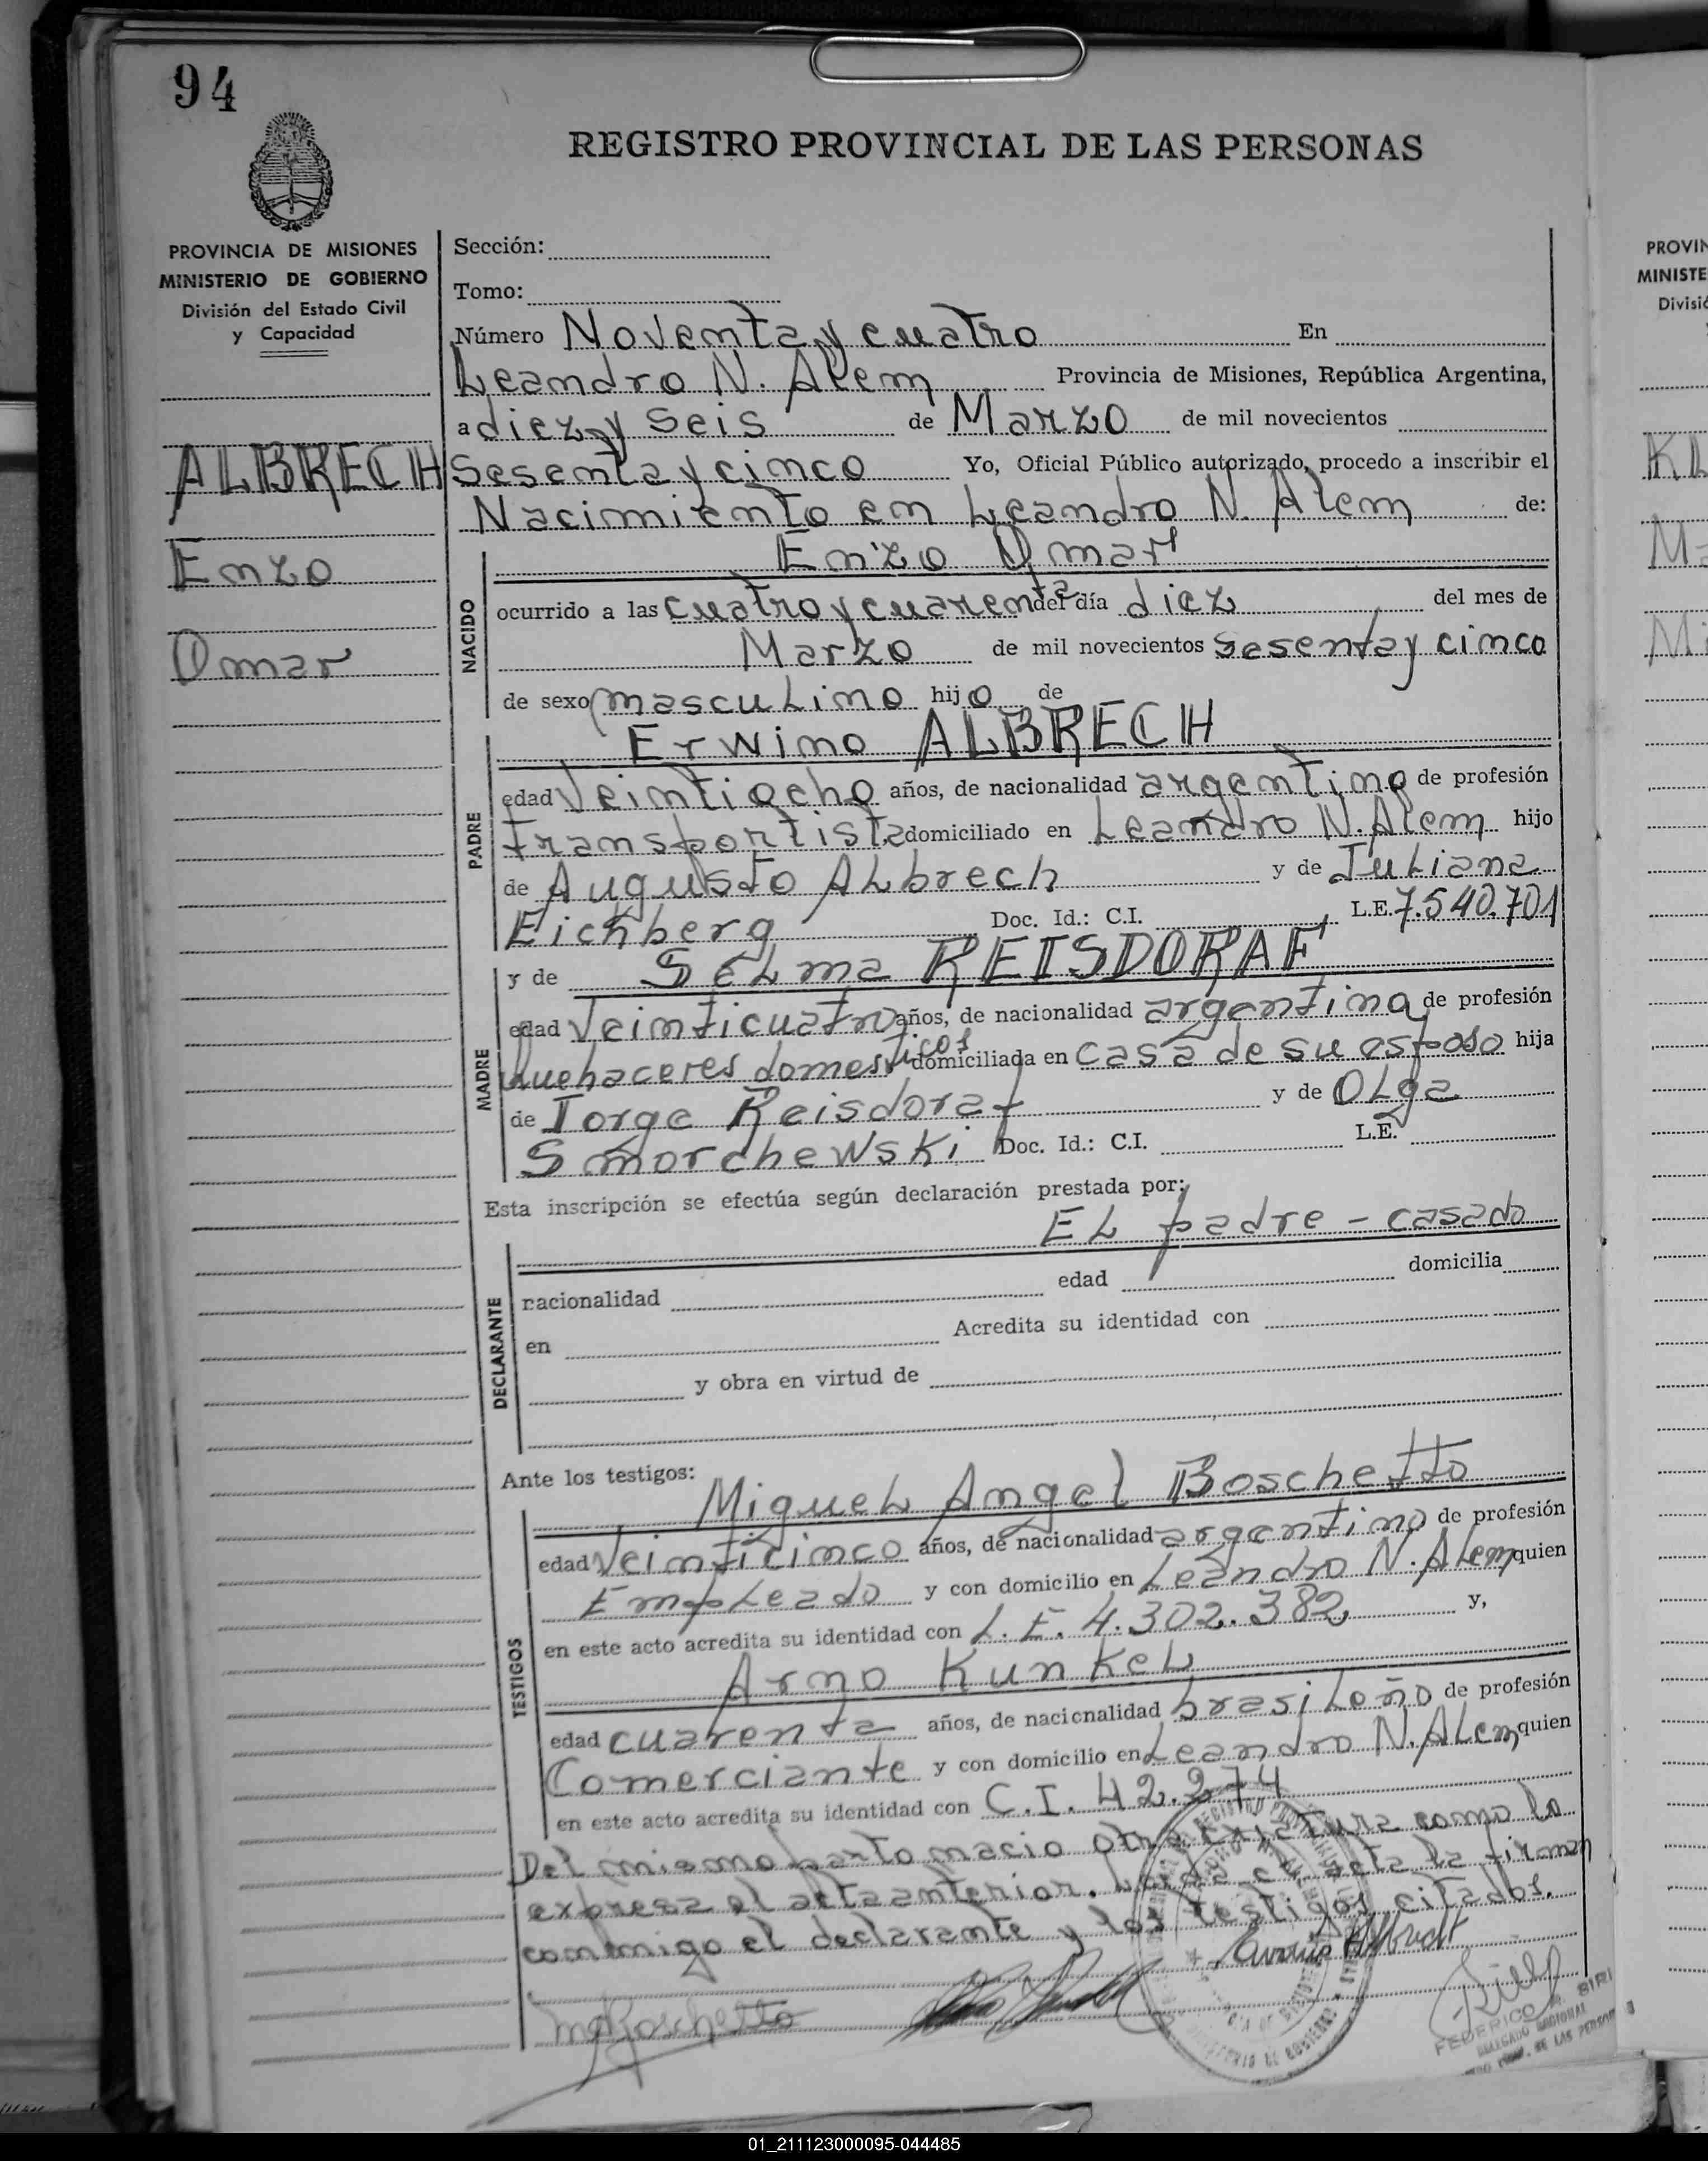 94
REGISTRO PROVINCIAL DE LAS PERSONAS
PROVINCIA DE MISIONES
MINISTERIO DE GOBIERNO
División del Estado Civil
y Capacidad
ALBRECH
Enzo
Omar
Sección:
Tomo:
Número Noventa y cuatro En
Leandro N. Alem Provincia de Misiones, República Argentina,
a diez y seis de Marzo de mil novecientos
Sesenta y cinco Yo, Oficial Público autorizado, procedo a inscribir el
Nacimiento en Leandro N. Alem de:
Enzo Omar
NACIDO
ocurrido a las cuatro y cuarenta del día diez del mes de
Marzo de mil novecientos sesenta y cinco
de sexo masculino hijo de
PADRE
Erwino ALBRECH
edad Veintiocho años, de nacionalidad argentino de profesión
transportista domiciliado en Leandro N. Alem hijo
de Augusto Albrech y de Juliana
Eichberg Doc. Id.: C.I. L.E. 7.540.701
MADRE
y de Selma REISDORAF
edad Veinticuatro años, de nacionalidad argentina de profesión
quehaceres domesticos domiciliada en casa de su esposo hija
de Jorge Reisdoraf y de Olga
Smorchewski Doc. Id.: C.I. L.E.
Esta inscripción se efectúa según declaración prestada por:
El padre - casado
DECLARANTE
nacionalidad edad domicilia
en Acredita su identidad con
y obra en virtud de
Ante los testigos:
Miguel Angel Boschetto
TESTIGOS
edad Veinticinco años, de nacionalidad argentino de profesión
Empleado y con domicilio en Leandro N. Alem quien
en este acto acredita su identidad con L.E. 4.302.382 y,
Arno Kunkel
edad cuarenta años, de nacionalidad brasileño de profesión
Comerciante y con domicilio en Leandro N. Alem quien
en este acto acredita su identidad con C.I. 42.274
Del mismo parto nacio otra criatura como lo
expresa el acta anterior. Leida el acta la firman
conmigo el declarante y los testigos citados.
MABoschetto
FEDERICO
DELEGADO REGIONAL
DE LAS PERSON
PROVIN
MINISTE
Divisió
01_211123000095-044485